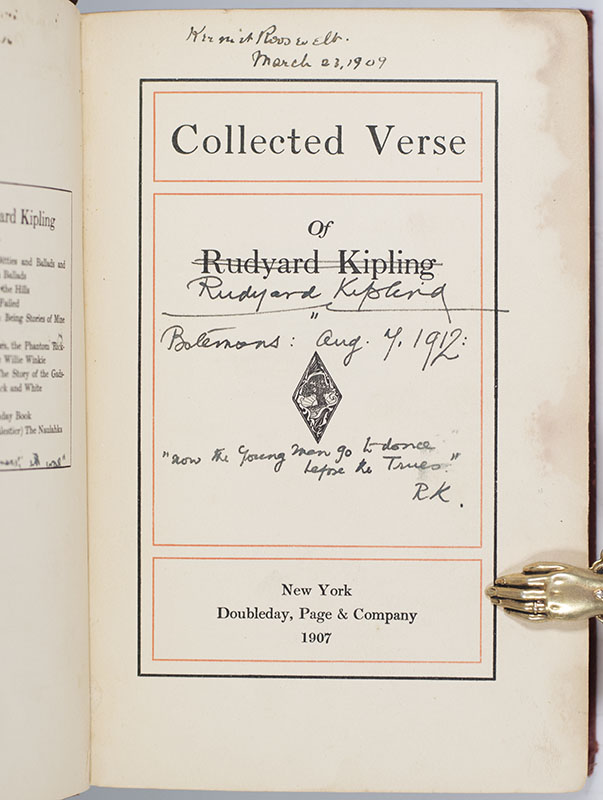 Kermit Roosevelt.
March 23, 1909
Collected Verse
Of
Rudyard Kipling
Rudyard Kipling
Batemans: Aug. 7. 1912:
"now the young men go to dance
before the Trues."
R.K.
New York
Doubleday, Page & Company
1907
ard Kipling
Ditties and Ballads and
Ballads
the Hills
Failed
Being Stories of Mine
the Phantom 'Rick-
Willie Winkie
The Story of the Gads-
ck and White
day Book
alestier) The Naulahka